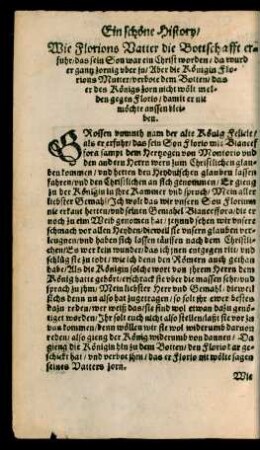 Ein schöne History/
Wie Florions Vatter die Bottschafft er-
fuhr/das sein Son war ein Christ worden/da wurd
er gantz zornig vber jn/Aber die Königin Flo-
rions Mutter/verbote dem Botten/das
er des Königs zorn nicht wölt mel-
den gegen Florio/damit er nit
möchte aussen blei-
ben.
GRossen vnmuth nam der alte König Felice/
als er erfuhr/das sein Son Florio mit Biancef-
fora sampt dem Hertzogen von Montorio vnd
den andern Herren weren zum Christlichen glau-
ben kommen/vnd hetten den Heydnischen glauben lassen
fahren/vnd den Christlichen an sich genommen/Er gieng
zu der Königin in ihre Kammer vnd sprach/Mein aller
liebstes Gemahl/Ich wolt das wir vnsern Son Florium
nie erkant hetten/vnd seinen Gemahel Bianceffora/die er
noch zu Weib genomen hat/jetzund sehen wir vnsere
schmach vor allen Heyden/dieweil sie vnsern glauben ver-
leugnen/vnd haben sich lassen täuffen nach dem Christli-
chen/Es wer kein wunder/das ich jnen entgegen ritte/vnd
schlüg sie zu todt/wie ich denn den Römern auch gethan
habe/Als die Königin solche wort von ihrem Herrn dem
König hatte gehört/erschrack sie vber die massen sehr/vnd
sprach zu jhm/Mein liebster Herr vnd Gemahl/dieweil
sichs denn nu also hat zugetragen/so solt jhr ewer bestes
dazu reden/wer weiß das sie sind wol etwan dazu genö-
tiget worden/Ihr solt euch nicht also stellen/laßt sie vor zu
vns kommen/denn wöllen wir sie wol widerumb daruon
reden/also gieng der König widerumb von dannen/Da
gieng die Königin hin zu dem Botten/den Florio dar ge-
schickt hat/vnd verbot jhm/das er Florio nit wölte sagen
seines Vatters zorn.
Wie